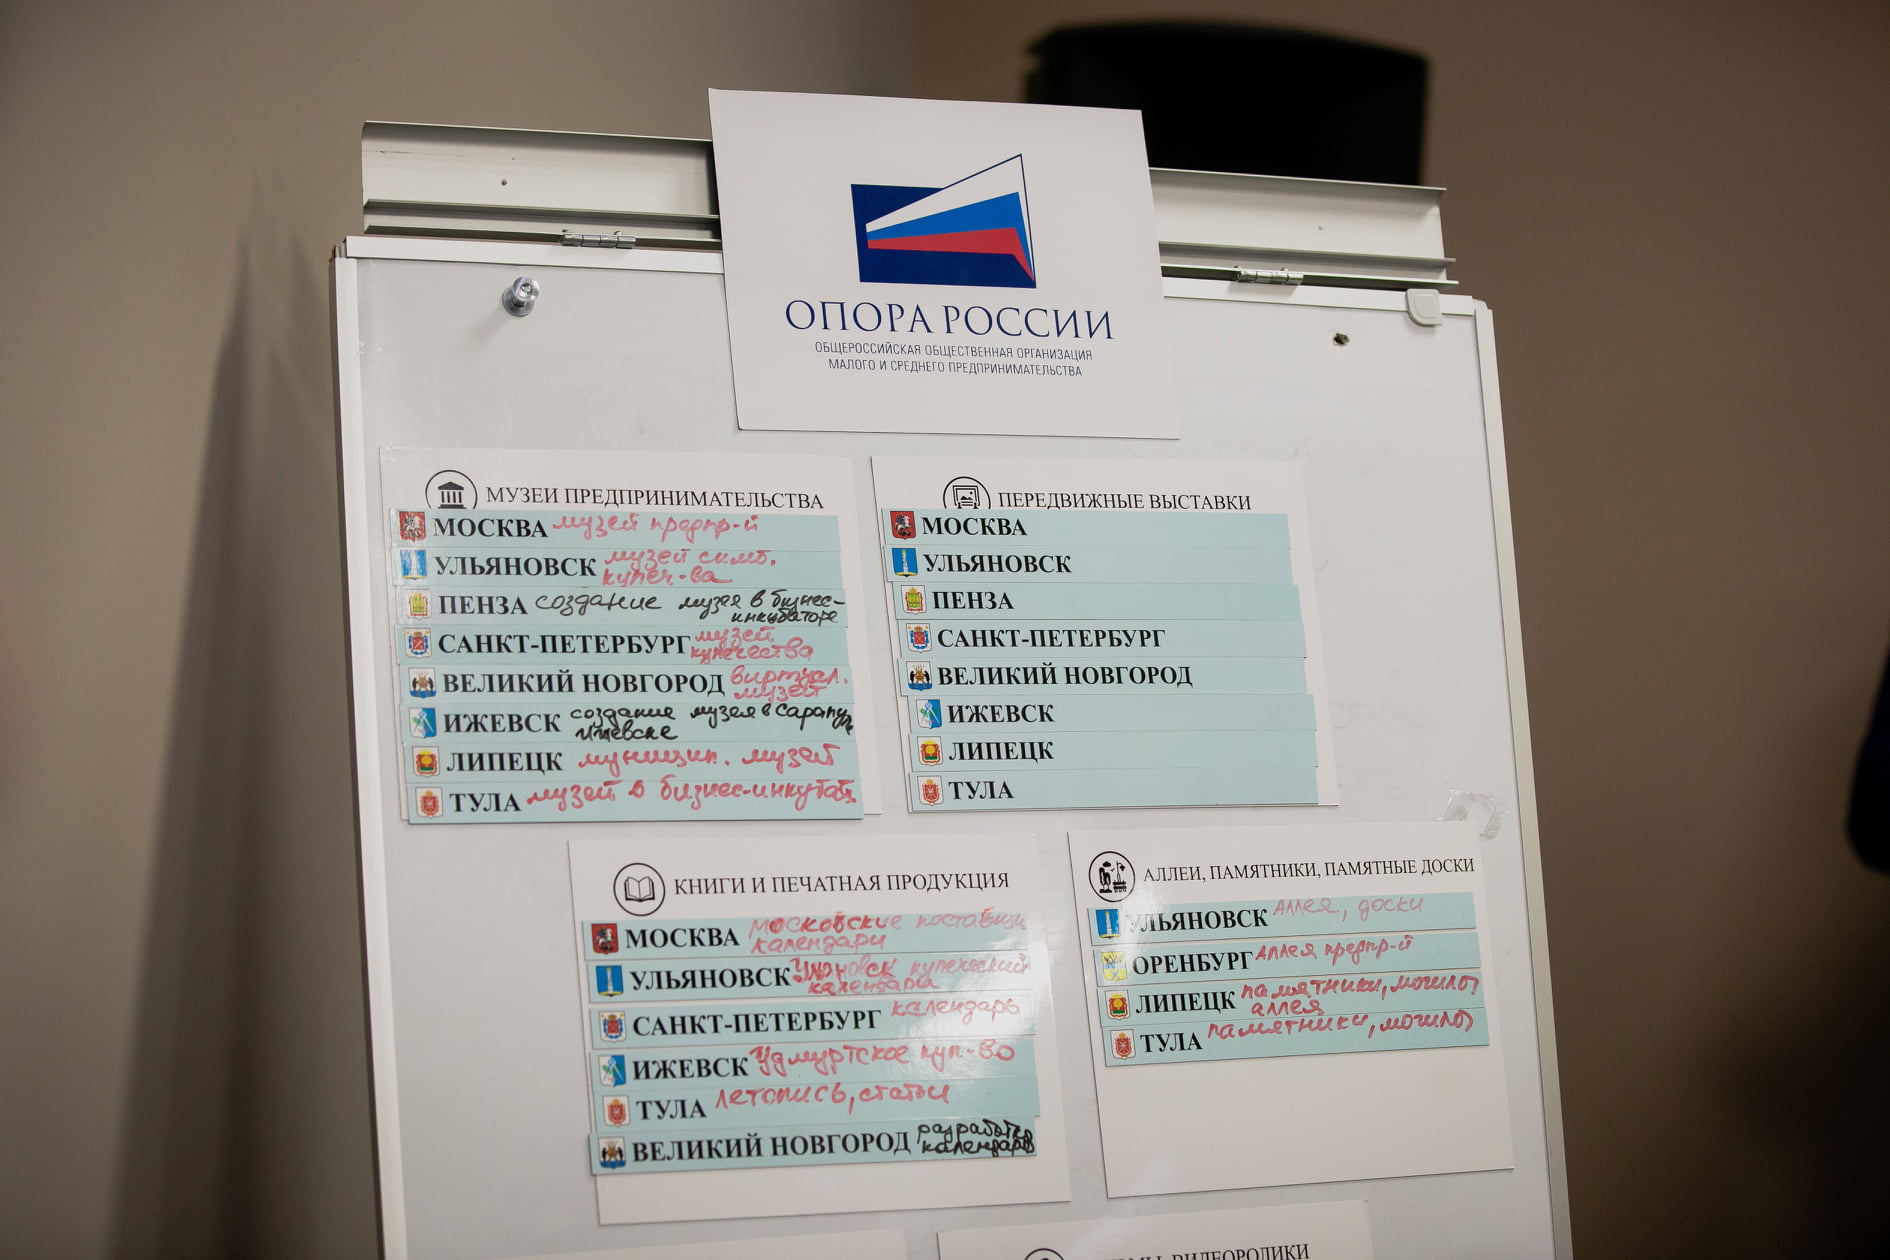 ОПОРА РОССИИ
ОБЩЕРОССИЙСКАЯ ОБЩЕСТВЕННАЯ ОРГАНИЗАЦИЯ
МАЛОГО И СРЕДНЕГО ПРЕДПРИНИМАТЕЛЬСТВА
МУЗЕИ ПРЕДПРИНИМАТЕЛЬСТВА
МОСКВА музей предпр-й
УЛЬЯНОВСК музей симб.
купеч-ва
ПЕНЗА создание музея в бизнес-
инкубаторе
САНКТ-ПЕТЕРБУРГ музей
купечества
ВЕЛИКИЙ НОВГОРОД виртуал.
музей
ИЖЕВСК создание музея в Сарапуле
Ижевске
ЛИПЕЦК муницип. музей
ТУЛА музей в бизнес-инкубат.
ПЕРЕДВИЖНЫЕ ВЫСТАВКИ
МОСКВА
УЛЬЯНОВСК
ПЕНЗА
САНКТ-ПЕТЕРБУРГ
ВЕЛИКИЙ НОВГОРОД
ИЖЕВСК
ЛИПЕЦК
ТУЛА
КНИГИ И ПЕЧАТНАЯ ПРОДУКЦИЯ
МОСКВА московские поставщи
календари
УЛЬЯНОВСК купеческий
календари
САНКТ-ПЕТЕРБУРГ календарь
ИЖЕВСК Удмуртское куп-во
ТУЛА летопись, статьи
ВЕЛИКИЙ НОВГОРОД
календарь
АЛЛЕИ, ПАМЯТНИКИ, ПАМЯТНЫЕ ДОСКИ
УЛЬЯНОВСК аллея, доски
ОРЕНБУРГ аллея предпр-й
ЛИПЕЦК памятники, могилы
аллея
ТУЛА памятники, могилы
ВИДЕОРОЛИКИ